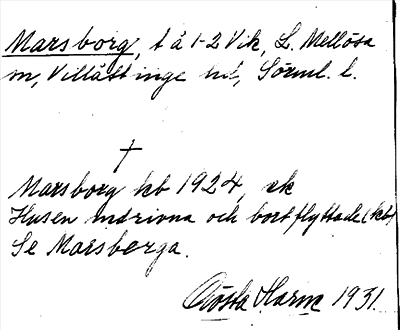 Marsborg, t å 1-2 Vik, L. Mellösa
sn, Villåttinge hd, Sörml. l.
†
Marsborg kb 1924, ek
Husen indrivna och bortflyttade (kb)
Se Marsberga.
Gösta Harm 1931.